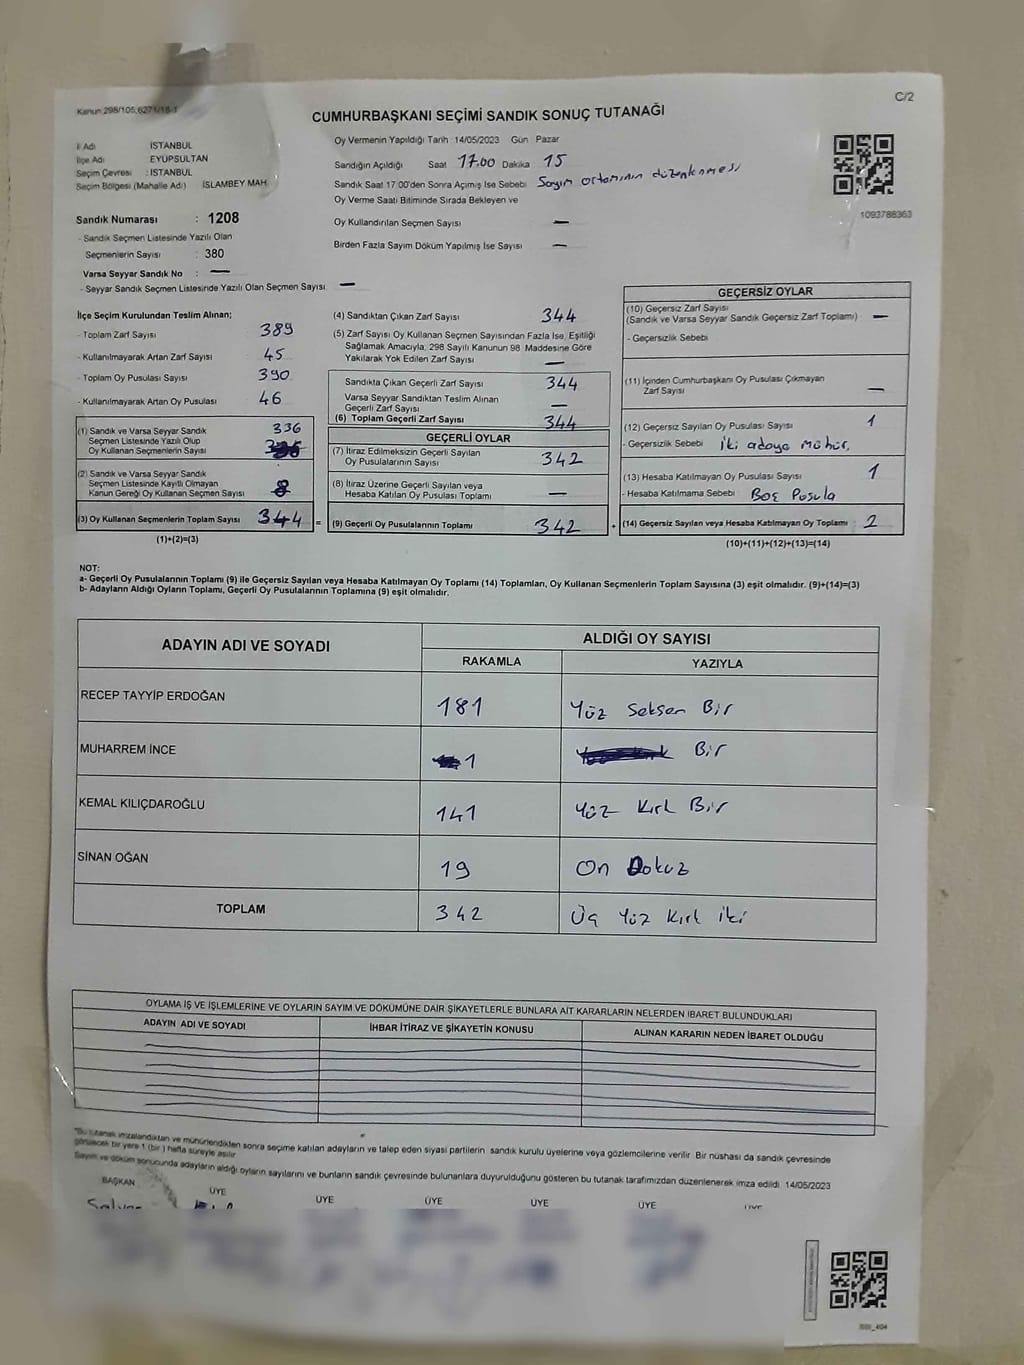 Kanun 298/105,6271/18-1
C/2
CUMHURBAŞKANI SEÇİMİ SANDIK SONUÇ TUTANAĞI
İl Adı İSTANBUL
İlçe Adı EYÜPSULTAN
Seçim Çevresi : İSTANBUL
Seçim Bölgesi (Mahalle Adı) İSLAMBEY MAH.
Sandık Numarası : 1208
- Sandık Seçmen Listesinde Yazılı Olan
Seçmenlerin Sayısı : 380
Varsa Seyyar Sandık No : —
- Seyyar Sandık Seçmen Listesinde Yazılı Olan Seçmen Sayısı —
Oy Vermenin Yapıldığı Tarih 14/05/2023 Gün Pazar
Sandığın Açıldığı Saat 17.00 Dakika 15
Sandık Saat 17 00'den Sonra Açılmış İse Sebebi Sayım ortamının düzenlenmesi
Oy Verme Saati Bitiminde Sırada Bekleyen ve
Oy Kullandırılan Seçmen Sayısı —
Birden Fazla Sayım Döküm Yapılmış İse Sayısı —
1093788363
İlçe Seçim Kurulundan Teslim Alınan;
- Toplam Zarf Sayısı 389
- Kullanılmayarak Artan Zarf Sayısı 45
- Toplam Oy Pusulası Sayısı 390
- Kullanılmayarak Artan Oy Pusulası 46
(1) Sandık ve Varsa Seyyar Sandık 336
Seçmen Listesinde Yazılı Olup
Oy Kullanan Seçmenlerin Sayısı
(2) Sandık ve Varsa Seyyar Sandık
Seçmen Listesinde Kayıtlı Olmayan
Kanun Gereği Oy Kullanan Seçmen Sayısı 8
(3) Oy Kullanan Seçmenlerin Toplam Sayısı 344 =
(1)+(2)=(3)
(4) Sandıktan Çıkan Zarf Sayısı 344
(5) Zarf Sayısı Oy Kullanan Seçmen Sayısından Fazla İse, Eşitliği
Sağlamak Amacıyla, 298 Sayılı Kanunun 98 Maddesine Göre
Yakılarak Yok Edilen Zarf Sayısı —
Sandıkta Çıkan Geçerli Zarf Sayısı 344
Varsa Seyyar Sandıktan Teslim Alınan
Geçerli Zarf Sayısı —
(6) Toplam Geçerli Zarf Sayısı 344
GEÇERLİ OYLAR
(7) İtiraz Edilmeksizin Geçerli Sayılan
Oy Pusulalarının Sayısı 342
(8) İtiraz Üzerine Geçerli Sayılan veya
Hesaba Katılan Oy Pusulası Toplamı —
(9) Geçerli Oy Pusulalarının Toplamı 342 +
GEÇERSİZ OYLAR
(10) Geçersiz Zarf Sayısı
(Sandık ve Varsa Seyyar Sandık Geçersiz Zarf Toplamı) —
- Geçersizlik Sebebi
(11) İçinden Cumhurbaşkanı Oy Pusulası Çıkmayan
Zarf Sayısı —
(12) Geçersiz Sayılan Oy Pusulası Sayısı 1
- Geçersizlik Sebebi İki adaya mühür.
(13) Hesaba Katılmayan Oy Pusulası Sayısı 1
- Hesaba Katılmama Sebebi Boş Pusula
(14) Geçersiz Sayılan veya Hesaba Katılmayan Oy Toplamı 2
(10)+(11)+(12)+(13)=(14)
NOT:
a- Geçerli Oy Pusulalarının Toplamı (9) ile Geçersiz Sayılan veya Hesaba Katılmayan Oy Toplamı (14) Toplamları, Oy Kullanan Seçmenlerin Toplam Sayısına (3) eşit olmalıdır. (9)+(14)=(3)
b- Adayların Aldığı Oyların Toplamı, Geçerli Oy Pusulalarının Toplamına (9) eşit olmalıdır.
ADAYIN ADI VE SOYADI
ALDIĞI OY SAYISI
RAKAMLA YAZIYLA
RECEP TAYYİP ERDOĞAN 181 Yüz Seksen Bir
MUHARREM İNCE 1 Bir
KEMAL KILIÇDAROĞLU 141 Yüz Kırk Bir
SİNAN OĞAN 19 On Dokuz
TOPLAM 342 Üç Yüz Kırk İki
OYLAMA İŞ VE İŞLEMLERİNE VE OYLARIN SAYIM VE DÖKÜMÜNE DAİR ŞİKAYETLERLE BUNLARA AİT KARARLARIN NELERDEN İBARET BULUNDUKLARI
ADAYIN ADI VE SOYADI İHBAR İTİRAZ VE ŞİKAYETİN KONUSU ALINAN KARARIN NEDEN İBARET OLDUĞU
*Bu tutanak imzalandıktan ve mühürlendikten sonra seçime katılan adayların ve talep eden siyasi partilerin sandık kurulu üyelerine veya gözlemcilerine verilir Bir nüshası da sandık çevresinde
görülecek bir yere 1 (bir) hafta süreyle asılır
Sayım ve döküm sonucunda adayların aldığı oyların sayılarını ve bunların sandık çevresinde bulunanlara duyurulduğunu gösteren bu tutanak tarafımızdan düzenlenerek imza edildi. 14/05/2023
BAŞKAN ÜYE ÜYE ÜYE ÜYE ÜYE